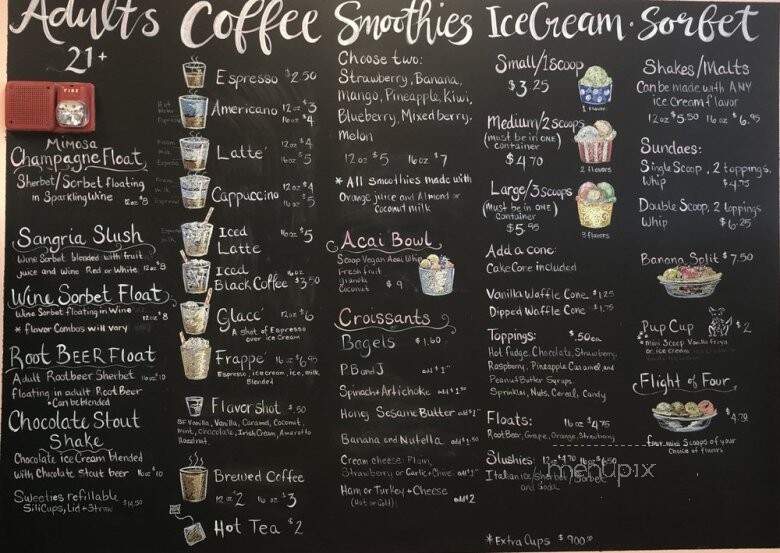 Adults
21+
FIRE
Mimosa
Champagne Float
Sherbet/Sorbet floating
in Sparkling Wine 12oz $8
Sangria Slush
Wine Sorbet blended with fruit
juice and wine Red or White 12oz $8
Wine Sorbet Float
Wine Sorbet floating in Wine 12oz $8
* flavor Combos will vary
Root Beer Float
Adult Rootbeer Sherbet 16oz $10
floating in adult Root Beer
*Can be blended
Chocolate Stout
Shake
Chocolate ice Cream blended
with Chocolate Stout beer 16oz $10
Sweeties refillable
Sili Cups, Lid + Straw
Coffee
Espresso $2.50
Americano 12oz $3
16oz $4
Latte 12oz $4
16oz $5
Cappuccino 12oz $4
16oz $5
Iced
Latte 16oz $5
Iced
Black Coffee 16oz $3.50
Glacé 12oz $6
A shot of Espresso
over ice Cream
Frappe 16oz $6.95
Espresso, ice cream, ice, milk
Blended
Flavor shot .50
SF Vanilla, Vanilla, Caramel, Coconut,
mint, Chocolate, Irish Cream, Amaretto
Hazelnut
Brewed Coffee
12oz $2 16oz $3
Hot Tea $2
Smoothies
Choose two:
Strawberry, Banana,
Mango, Pineapple, Kiwi,
Blueberry, Mixed berry,
Melon
12oz $5 16oz $7
* All Smoothies made with
Orange juice and Almond or
Coconut milk
Acai Bowl
Scoop Vegan Acai Whip
Fresh fruit
Granola
Coconut $9
Croissants
Bagels $1.60
PB and J add $1
Spinach + Artichoke add $1.50
Honey Sesame Butter add $1
Banana and Nutella add $1.50
Cream cheese: Plain,
Strawberry or Garlic + Chive add $1
Ham or Turkey + Cheese
(Hot or Cold) add $2
Ice Cream · Sorbet
Small/1 scoop
$3.25
1 flavor
Medium/2 scoops
(must be in one)
container
$4.70
2 flavors
Large/3 scoops
(Must be in one)
Container
$5.95
3 flavors
Add a cone:
Cake Cone included
Vanilla Waffle Cone $1.25
Dipped Waffle Cone $1.75
Toppings: $.50ea
Hot fudge, Chocolate, Strawberry
Raspberry, Pineapple, Caramel and
Peanut Butter Syrups.
Sprinkles, Nuts, Cereal, Candy
Floats: 16oz $4.75
Root Beer, Grape, Orange, Strawberry
Slushies: 12oz $4.70 16oz $6.50
Italian ice/Sherbet/Sorbet
and Soda
* Extra Cups $.90
Shakes/Malts
Can be made with ANY
ice Cream flavor
12oz $5.50 16oz $6.95
Sundaes:
Single Scoop, 2 toppings,
Whip $4.75
Double Scoop, 2 toppings
Whip $6.25
Banana Split $7.50
Pup Cup $2
* mini Scoop Vanilla froyo
or ice cream
Flight of Four
$4.79
Four mini Scoops of your
Choice of flavors
menupix